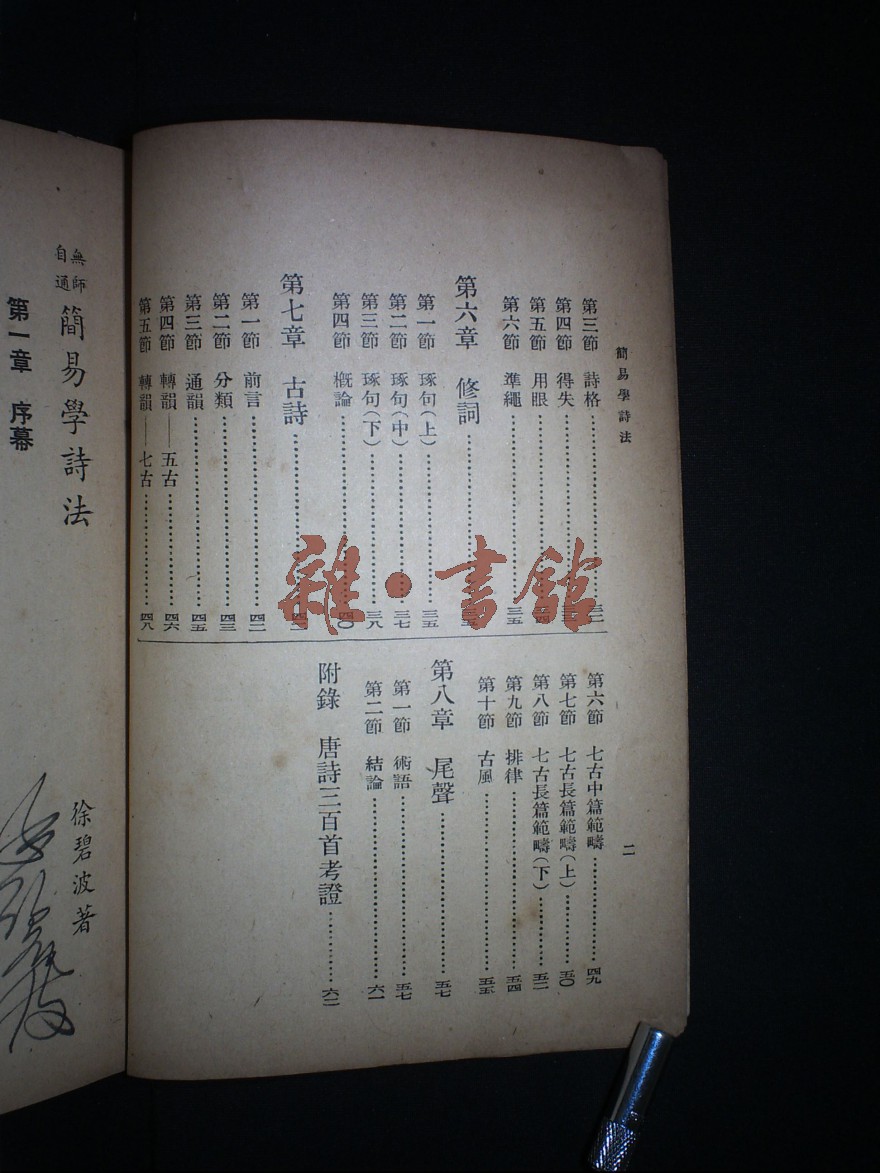 簡易學詩法
二
第三節 詩格
第四節 得失
第五節 用眼
第六節 準繩 三五
第六章 修詞
第一節 琢句(上) 三五
第二節 琢句(中) 三七
第三節 琢句(下) 三八
第四節 概論 四〇
第七章 古詩
第一節 前言 四二
第二節 分類 四三
第三節 通韻 四五
第四節 轉韻——五古 四六
第五節 轉韻——七古 四八
第六節 七古中篇範疇 四九
第七節 七古長篇範疇(上) 五〇
第八節 七古長篇範疇(下) 五二
第九節 排律 五四
第十節 古風 五五
第八章 尾聲 五七
第一節 術語 五七
第二節 結論 六一
附錄 唐詩三百首考證 六二
無師自通 簡易學詩法
徐碧波著
第一章 序幕
雜·書館